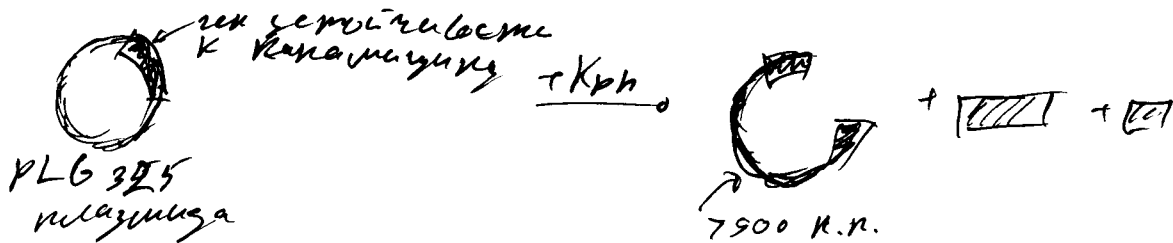 ген устойчивости
к канамицину
+ Kpn
+
+
PLG 325
плазмида
7900 п.п.